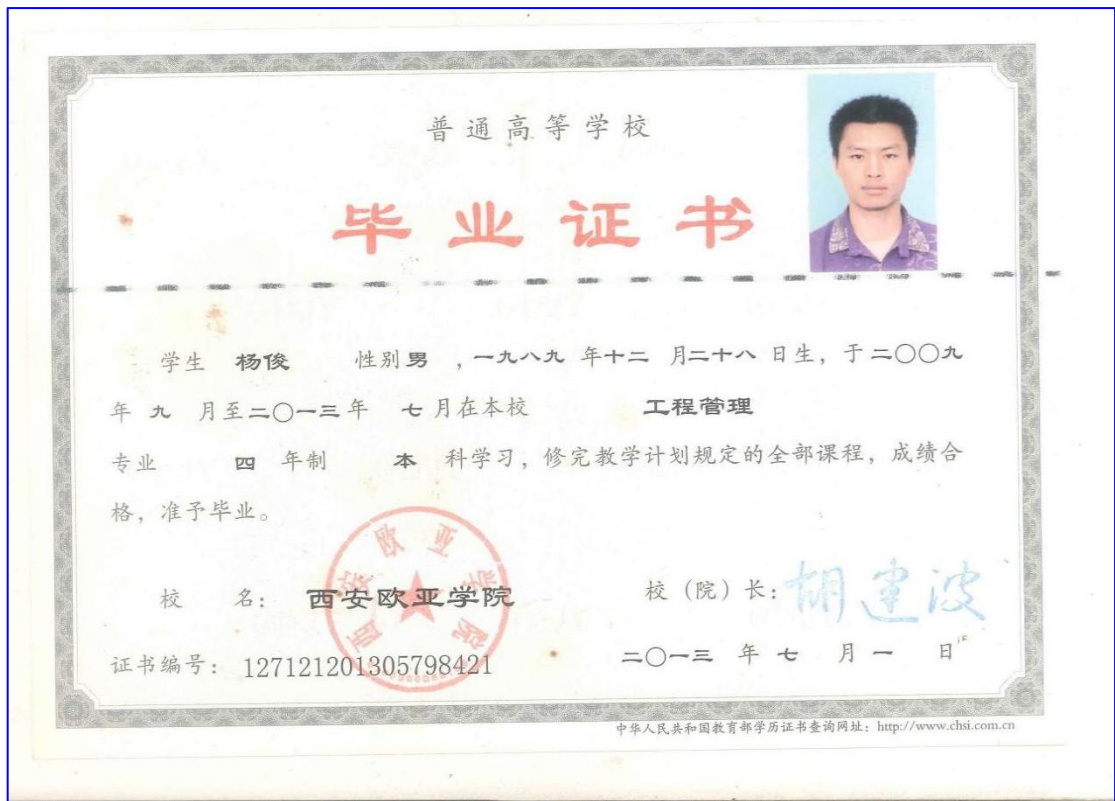 普通高等学校
毕业证书
学生 杨俊 性别 男 ，一九八九 年 十二 月 二十八 日生，于 二〇〇九
年 九 月至 二〇一三 年 七 月在本校 工程管理
专业 四 年制 本 科学习，修完教学计划规定的全部课程，成绩合
格，准予毕业。
西安欧亚学院
校 名： 西安欧亚学院 校（院）长：胡建波
证书编号：127121201305798421 二〇一三 年 七 月 一 日
中华人民共和国教育部学历证书查询网址：http://www.chsi.com.cn